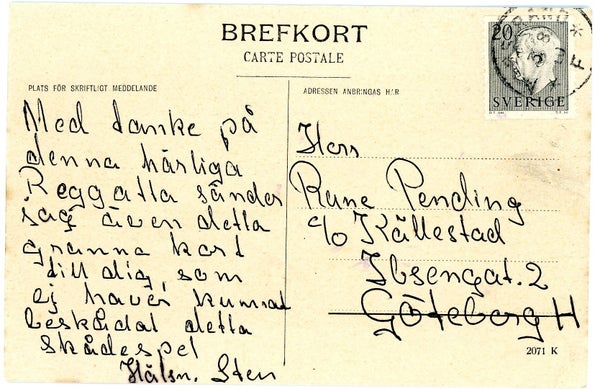 BREFKORT
CARTE POSTALE
PLATS FÖR SKRIFTLIGT MEDDELANDE
ADRESSEN ANBRINGAS HÄR
20
SVERIGE
Med tanke på
denna härliga
Reggatta sänder
jag även detta
granna kort
till dig, som
ej haver kunnat
beskådat detta
skådespel
Hälsn. Sten
Herr
Rune Pending
c/o Källestad
Ibsengat. 2
Göteborg H
2071 K